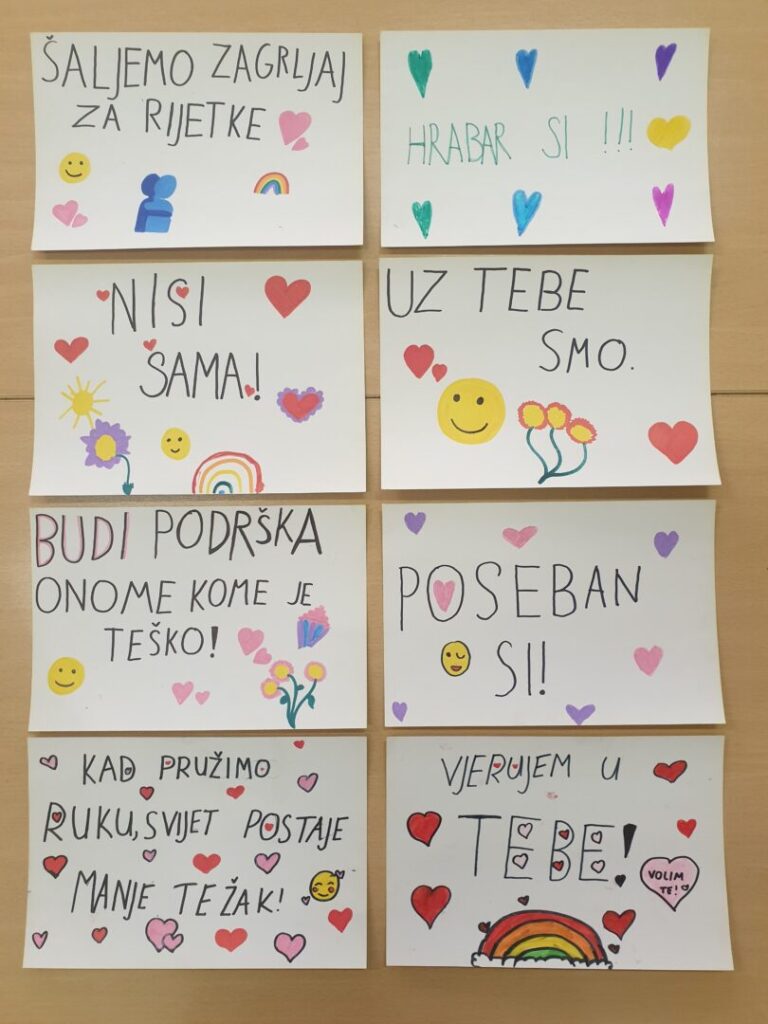 ŠALJEMO ZAGRLJAJ
ZA RIJETKE
HRABAR SI !!!
NISI
SAMA!
UZ TEBE
SMO.
BUDI PODRŠKA
ONOME KOME JE
TEŠKO!
POSEBAN
SI!
KAD PRUŽIMO
RUKU, SVIJET POSTAJE
MANJE TEŽAK!
VJERUJEM U
TEBE!
VOLIM
TE!